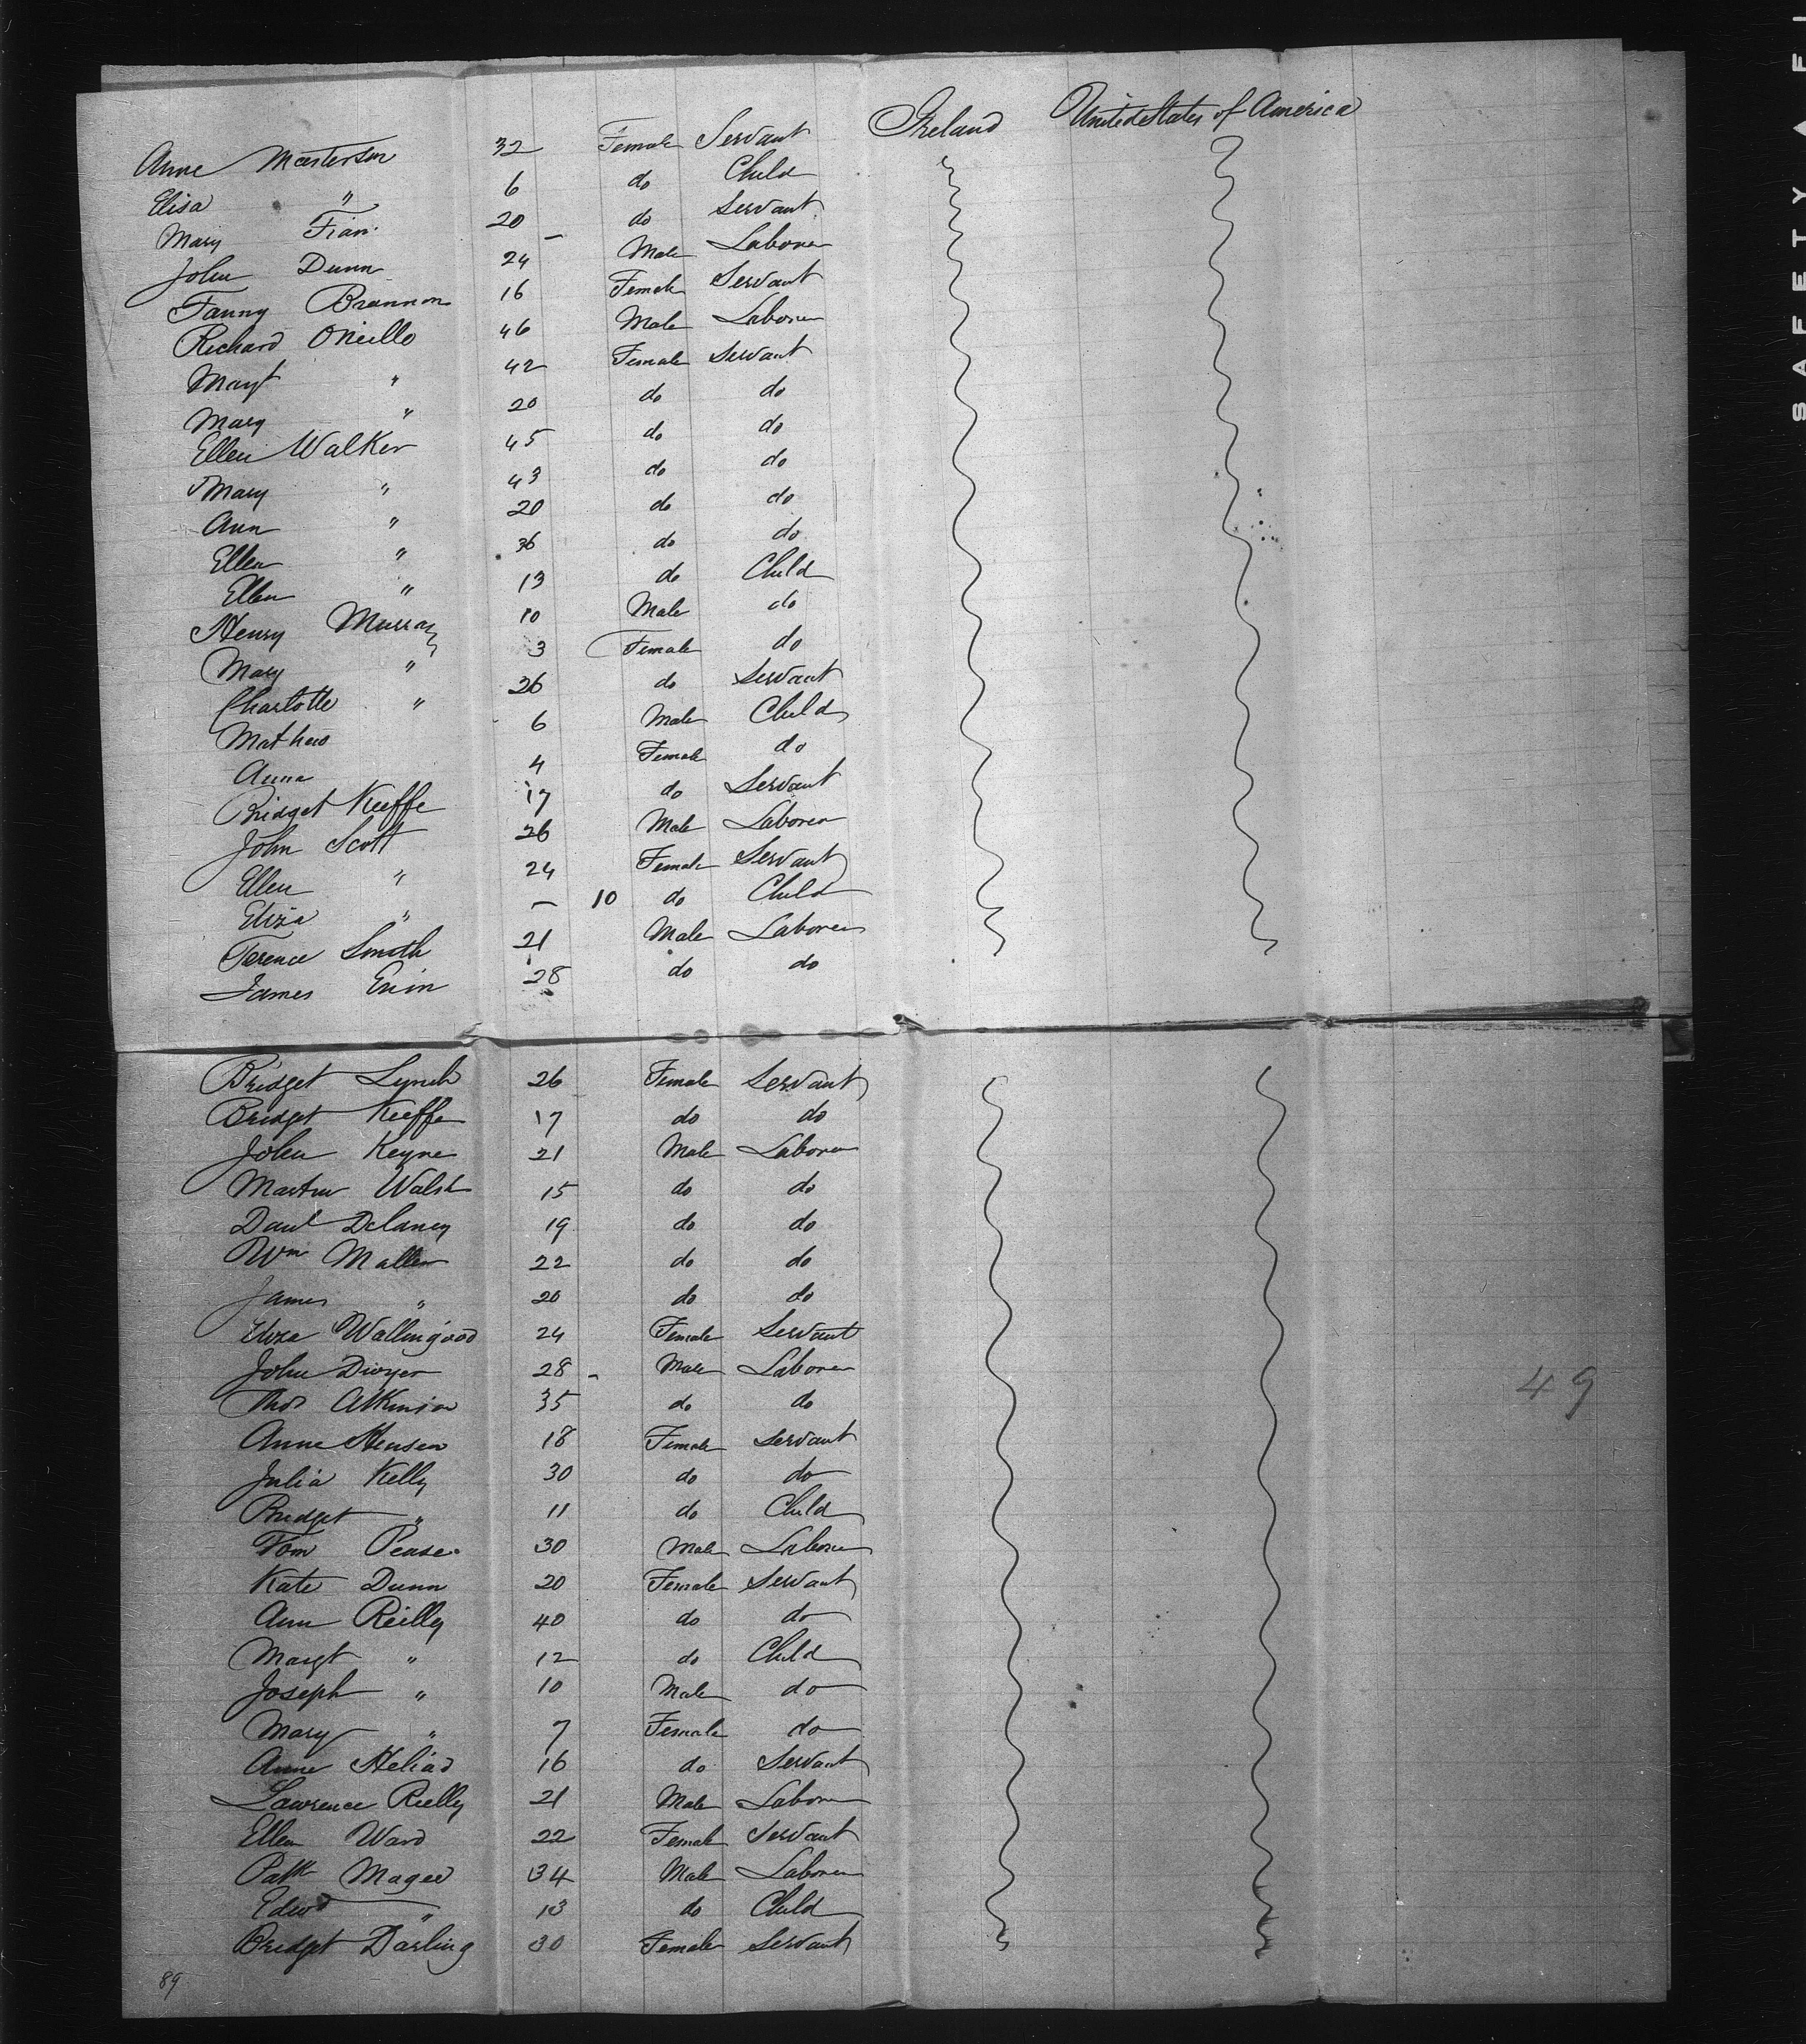 Ireland United States of America
Anne Masterson 32 Female Servant
Elisa " 6 do Child
Mary Fian 20 do Servant
John Dunn 24 Male Laborer
Fanny Brannon 16 Female Servant
Richard ONeille 46 Male Laborer
Margt " 42 Female Servant
Mary " 20 do do
Ellen Walker 45 do do
Mary " 43 do do
Ann " 20 do do
Ellen " 36 do do
Ellen " 13 do Child
Henry Murray 10 Male do
Mary " 3 Female do
Charlotte " 26 do Servant
Mathew 6 Male Child
Anna 4 Female do
Bridget Keeffe 17 do Servant
John Scott 26 Male Laborer
Ellen " 24 Female Servant
Eliza " – 10 do Child
Terence Smith 21 Male Laborer
James 28 do do
Bridget Lynch 26 Female Servant
Bridget Keeffe 17 do do
John Keyne 21 Male Laborer
Martin Walsh 15 do do
Danl Delaney 19 do do
Wm Mallen 22 do do
James " 20 do do
Eliza 24 Female Servant
John Dwyer 28 - Male Laborer
Thos Atkinson 35 do do
49
Anne Hensen 18 Female Servant
Julia Kelly 30 do do
Bridget " 11 do Child
Tom Pease 30 Male Laborer
Kate Dunn 20 Female Servant
Ann Reilly 40 do do
Margt " 12 do Child
Joseph " 10 Male do
Mary " 7 Female do
Anne 16 do Servant
Lawrence Reilly 21 Male Laborer
Ellen Ward 22 Female Servant
Patk Magee 34 Male Laborer
Edwd " 13 do Child
Bridget Darling 30 Female Servant
89
SAFETY